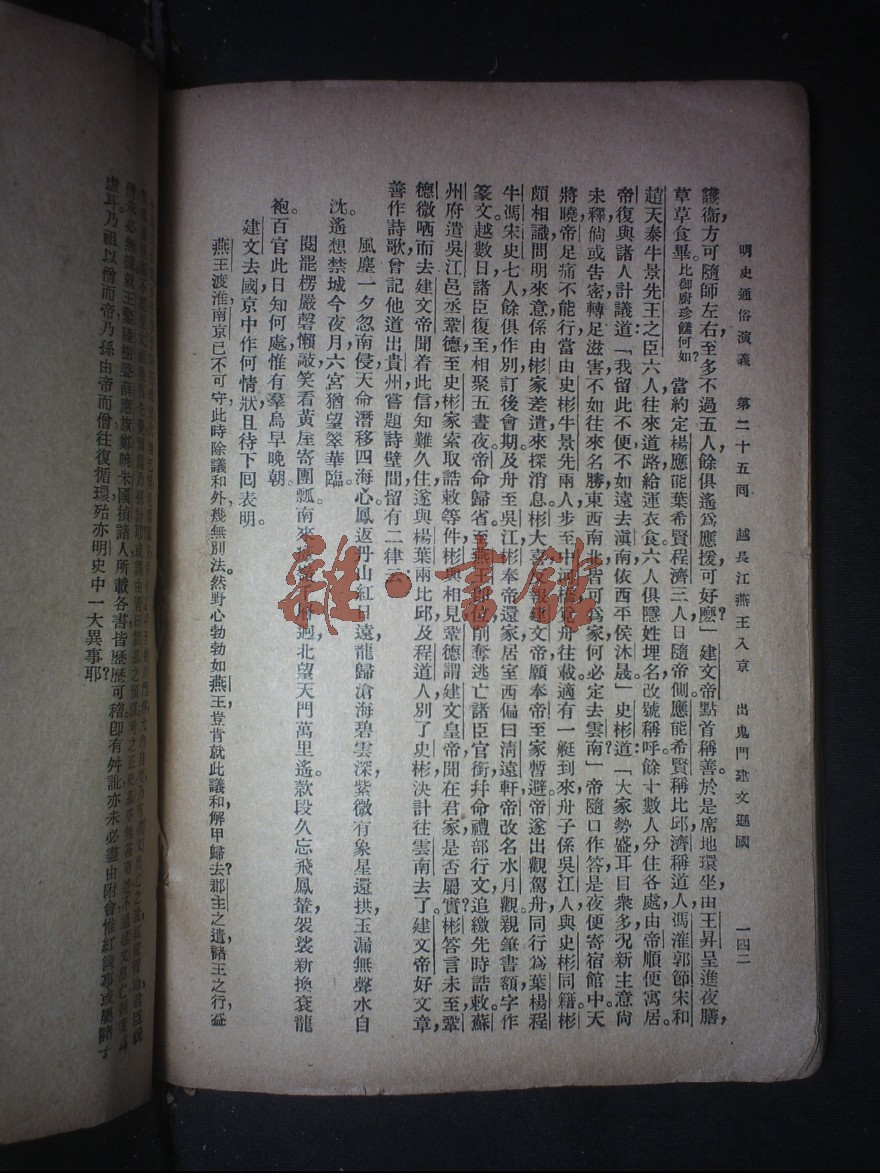 明史通俗演義　第二十五回　越長江燕王入京　出鬼門建文遜國　一四二
護衞方可隨師左右至多不過五人餘俱遙爲應援可好麽?」建文帝點首稱善於是席地環坐由王昇呈進夜膳,
草草食畢。比御廚珍饈何如?當約定楊應能葉希賢程濟三人日隨帝側,應能希賢稱比邱,濟稱道人,馮㴶郭節宋和
趙天泰牛景先王之臣六人往來道路給運衣食。六人俱隱姓埋名改號稱呼。餘十數人分住各處由帝順便寓居。
帝復與諸人計議道:「我留此不便不如遠去滇南依西平侯沐晟。」史彬道:「大家勢盛耳目衆多況新主意尙
未釋倘或告密轉足滋害不如往來名勝東西南北皆可爲家何必定去雲南?」帝隨口作答是夜便寄宿館中天
將曉帝足痛不能行當由史彬牛景先兩人步至中河橋覓舟往載。適有一艇到來舟子係吳江人與史彬同籍。彬
頗相識問明來意係由彬家差遣來探消息。彬大喜文報建文帝願奉帝至家暫避帝遂出觀駕舟同行爲葉楊程
牛馮宋史七人餘俱作別訂後會期。及舟至吳江彬奉帝還家居室西偏曰淸遠軒帝改名水月觀親筆書額字作
篆文。越數日諸臣復至相聚五晝夜。帝命歸省至燕王卽位削奪逃亡諸臣官銜幷命禮部行文追繳先時誥敕。蘇
州府遣吳江邑丞鞏德至史彬家索取誥敕等件彬與相見鞏德謂建文皇帝聞在君家是否屬實?彬答言未至鞏
德微哂而去建文帝聞着此信知難久住遂與楊葉兩比邱及程道人別了史彬決計往雲南去了。建文帝好文章,
善作詩歌曾記他道出貴州嘗題詩壁間留有二律云:
風塵一夕忽南侵天命潛移四海心鳳返丹山紅日遠,龍歸滄海碧雲深,紫微有象星還拱,玉漏無聲水自
沈。遙想禁城今夜月六宮猶望翠華臨。
閱罷楞嚴磬懶敲,笑看黃屋寄團瓢。南來瘴嶺千層迥,北望天門萬里遙。款段久忘飛鳳輦,袈裟新換袞龍
袍。百官此日知何處惟有羣烏早晚朝。
建文去國京中作何情狀且待下回表明。
燕王渡淮,南京已不可守,此時除議和外,幾無別法。然野心勃勃如燕王豈肯就此議和解甲歸去?郡主之遺諸王之行,益
僧未必無據,
諸人所載各書皆歷歷可稽卽有舛訛亦未必盡由附會,惟
虛耳。乃祖以僧而帝,乃孫由帝而僧往復循環殆亦明史中一大異事耶?
雜·書館